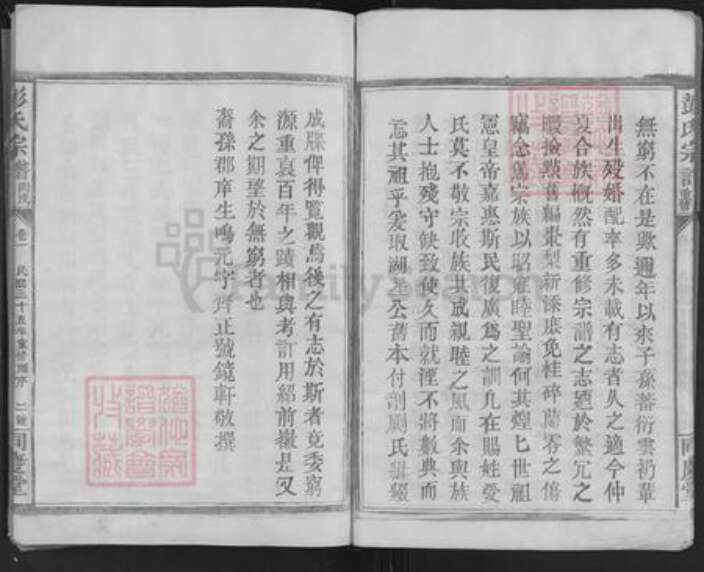 彭氏宗譜
無窮不在是歟邇年以來子孫蕃衍雲礽輩
出生歿婚配率多未載有志者久之適今仲
夏合族慨然有重修宗譜之志廼於繁冗之
暇撿點舊編棗梨新謀庶免桂碎蘭零之傷
竊念篤宗族以昭雍睦聖諭何其煌匕世祖
憲皇帝嘉惠斯民復廣為之訓凡在賜姓愛
氏莫不敬宗收族共成親睦之風而余與族
人士抱殘守缺致使久而就湮不將數典而
忘其祖乎爰取湖星公舊本付剞劂氏
同慶堂
成牒俾得覽觀焉後之有志於斯者竟委窮
源重裒百年之蹟相與考訂用紹前徽是又
余之期望於無窮者也
裔孫郡庠生鳴元字 正號鏡軒敬撰
彭氏宗譜
卷一
民國三十五年重修
同慶堂